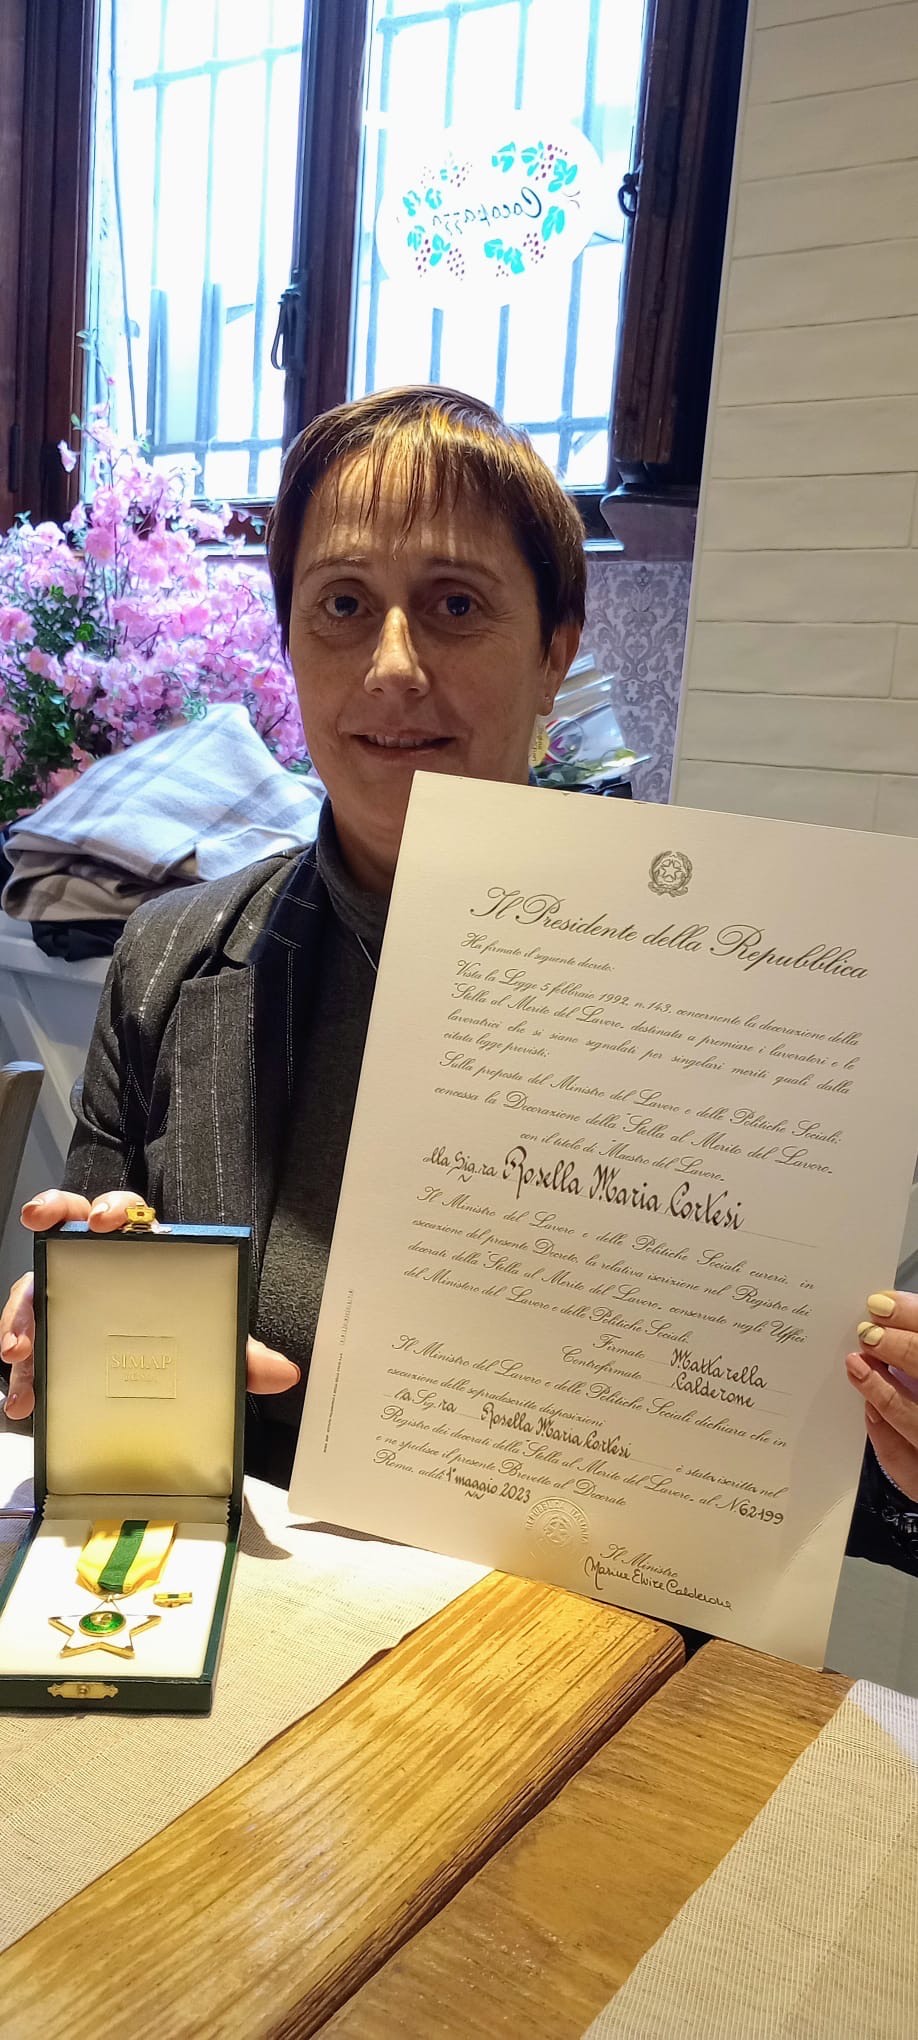 Cocopazzo
Il Presidente della Repubblica
Ha firmato il seguente decreto:
Vista la Legge 5 febbraio 1992, n. 143, concernente la decorazione della
"Stella al Merito del Lavoro" destinata a premiare i lavoratori e le
lavoratrici che si siano segnalati per singolari meriti quali dalla
citata legge previsti;
Sulla proposta del Ministro del Lavoro e delle Politiche Sociali;
concessa la Decorazione della "Stella al Merito del Lavoro"
con il titolo di "Maestro del Lavoro"
alla Sig.ra Rosella Maria Cortesi
Il Ministro del Lavoro e delle Politiche Sociali curerà, in
esecuzione del presente Decreto, la relativa iscrizione nel Registro dei
decorati della "Stella al Merito del Lavoro" conservato negli Uffici
del Ministero del Lavoro e delle Politiche Sociali.
Firmato Mattarella
Controfirmato Calderone
Il Ministro del Lavoro e delle Politiche Sociali dichiara che in
esecuzione delle sopradescritte disposizioni
la Sig.ra Rosella Maria Cortesi è stata iscritta nel
Registro dei decorati della "Stella al Merito del Lavoro" al N 62199
e ne spedisce il presente Brevetto al Decorato
Roma, addì 1° maggio 2023
Il Ministro
Marina Elvira Calderone
SIMAP